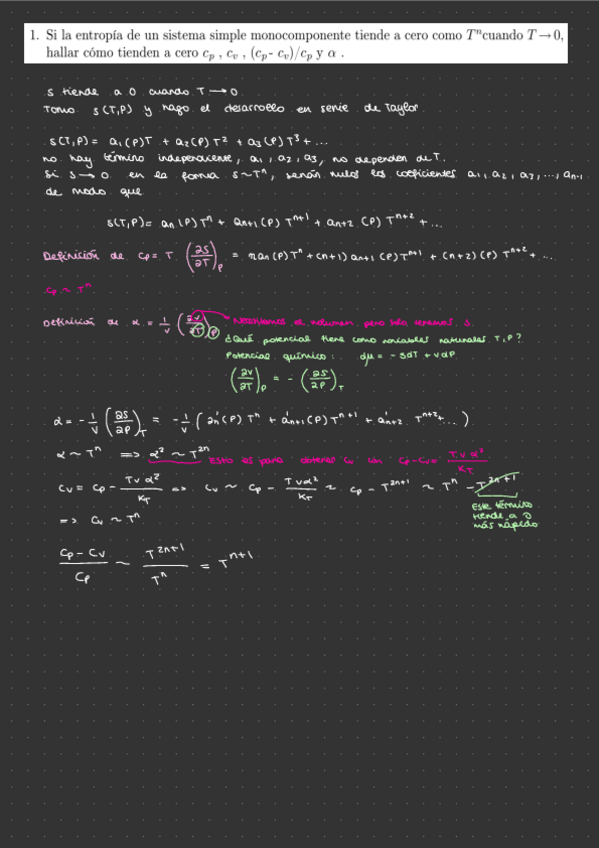 1. Si la entropía de un sistema simple monocomponente tiende a cero como Tⁿcuando T → 0,
hallar cómo tienden a cero c_p , c_v , (c_p - c_v)/c_p y α .
s tiende a 0 cuando T → 0.
Tomo s(T,P) y hago el desarrollo en serie de Taylor
s(T,P) = a₁(P)T + a₂(P)T² + a₃(P)T³ + ...
no hay término independiente, a₁, a₂, a₃, no dependen de T.
Si s → 0 en la forma s~Tⁿ, serán nulos los coeficientes a₁, a₂, a₃, ..., aₙ₋₁
de modo que
s(T,P) = aₙ(P)Tⁿ + aₙ₊₁(P)Tⁿ⁺¹ + aₙ₊₂(P)Tⁿ⁺² + ...
Definición de Cp = T (∂S/∂T)_P = n aₙ(P)Tⁿ + (n+1) aₙ₊₁(P)Tⁿ⁺¹ + (n+2)(P)Tⁿ⁺² + ...
Cp ~ Tⁿ
Definición de α = 1/v (∂v/∂T)_P → Necesitamos el volumen pero solo tenemos s.
¿Qué potencial tiene como variables naturales T, P?
Potencial químico: dμ = -sdT + vdP
(∂v/∂T)_P = - (∂S/∂P)_T
α = - 1/v (∂S/∂P)_T = - 1/v (aₙ'(P)Tⁿ + a'ₙ₊₁(P)Tⁿ⁺¹ + a'ₙ₊₂ Tⁿ⁺² + ...)
α ~ Tⁿ => α² ~ T²ⁿ Esto es para obtener Cv con Cp-Cv = Tvα²/K_T
Cv = Cp - Tvα²/K_T => Cv ~ Cp - Tvα²/K_T ~ Cp - T²ⁿ⁺¹ ~ Tⁿ - T²ⁿ⁺¹
Este término
tiende a 0
más rápido
=> Cv ~ Tⁿ
(Cp - Cv)/Cp ~ T²ⁿ⁺¹/Tⁿ = Tⁿ⁺¹